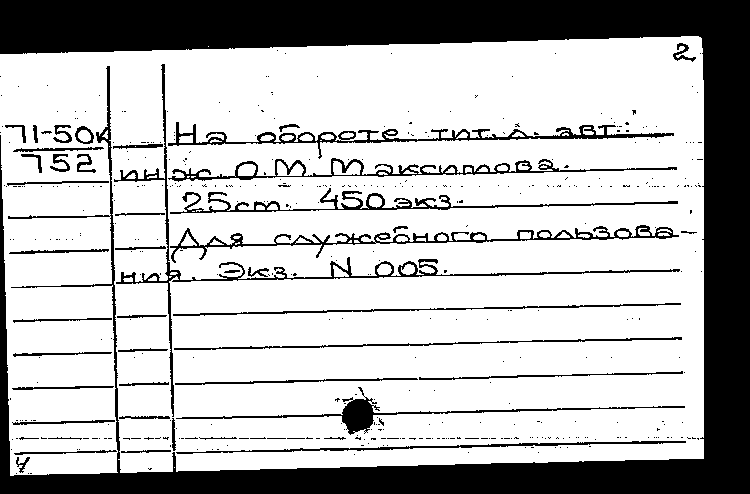 2
71-50к
752
На обороте тит. л. авт.:
инж. О.М. Максимова.
25 см. 450 экз.
Для служебного пользова-
ния. Экз. N 005.
4